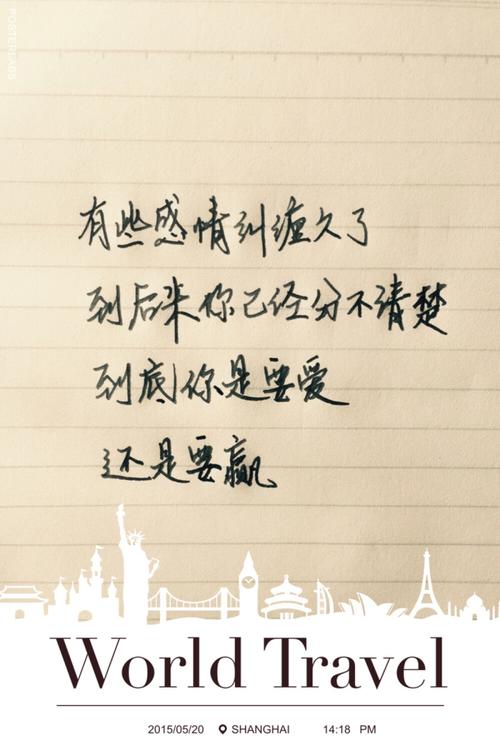 POSTERLABS
有些感情纠缠久了
到后来你已经分不清楚
到底你是要爱
还是要赢
World Travel
2015/05/20 SHANGHAI 14:18 PM